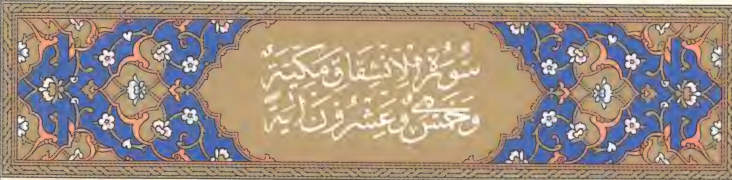 سُورَةُ الْاِنْشِقَاقِ مَكِّيَّةٌ
وَخَمْسٌ وَعِشْرُونَ آيَةً